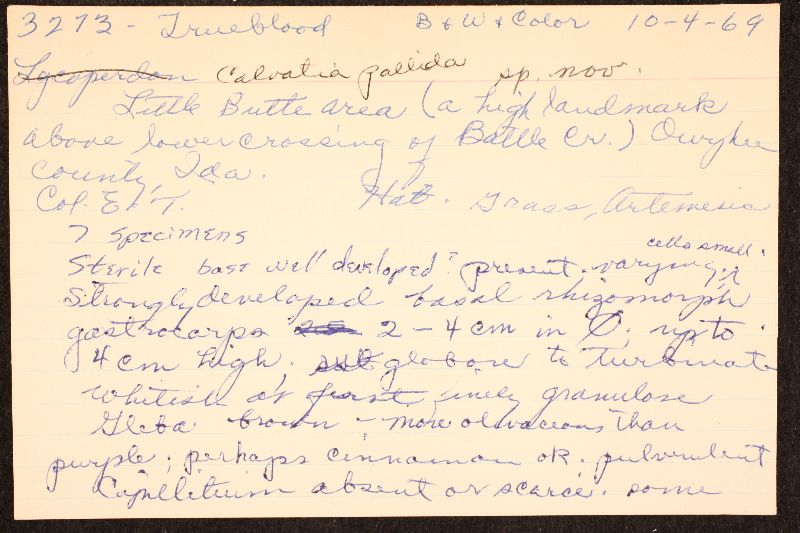 3273 - Trueblood B & W & Color 10-4-69
Lycoperdon Calvatia pallida sp. nov.
Little Butte area (a high landmark
above lower crossing of Battle Cr.) Owyhee
county, Ida.
Col. E.T. Hab. Grass, Artemesia
7 specimens
cells small.
Sterile base well developed? present. varying;
Strongly developed basal rhizomorph
gastrocarps 2-4 cm in Ø; up to
4 cm high, sub globose to turbinate
whitish at first finely granulose
Gleba brown - more olivaceous than
purple; perhaps cinnamon ok. pulverulent
Capillitium absent or scarce. some